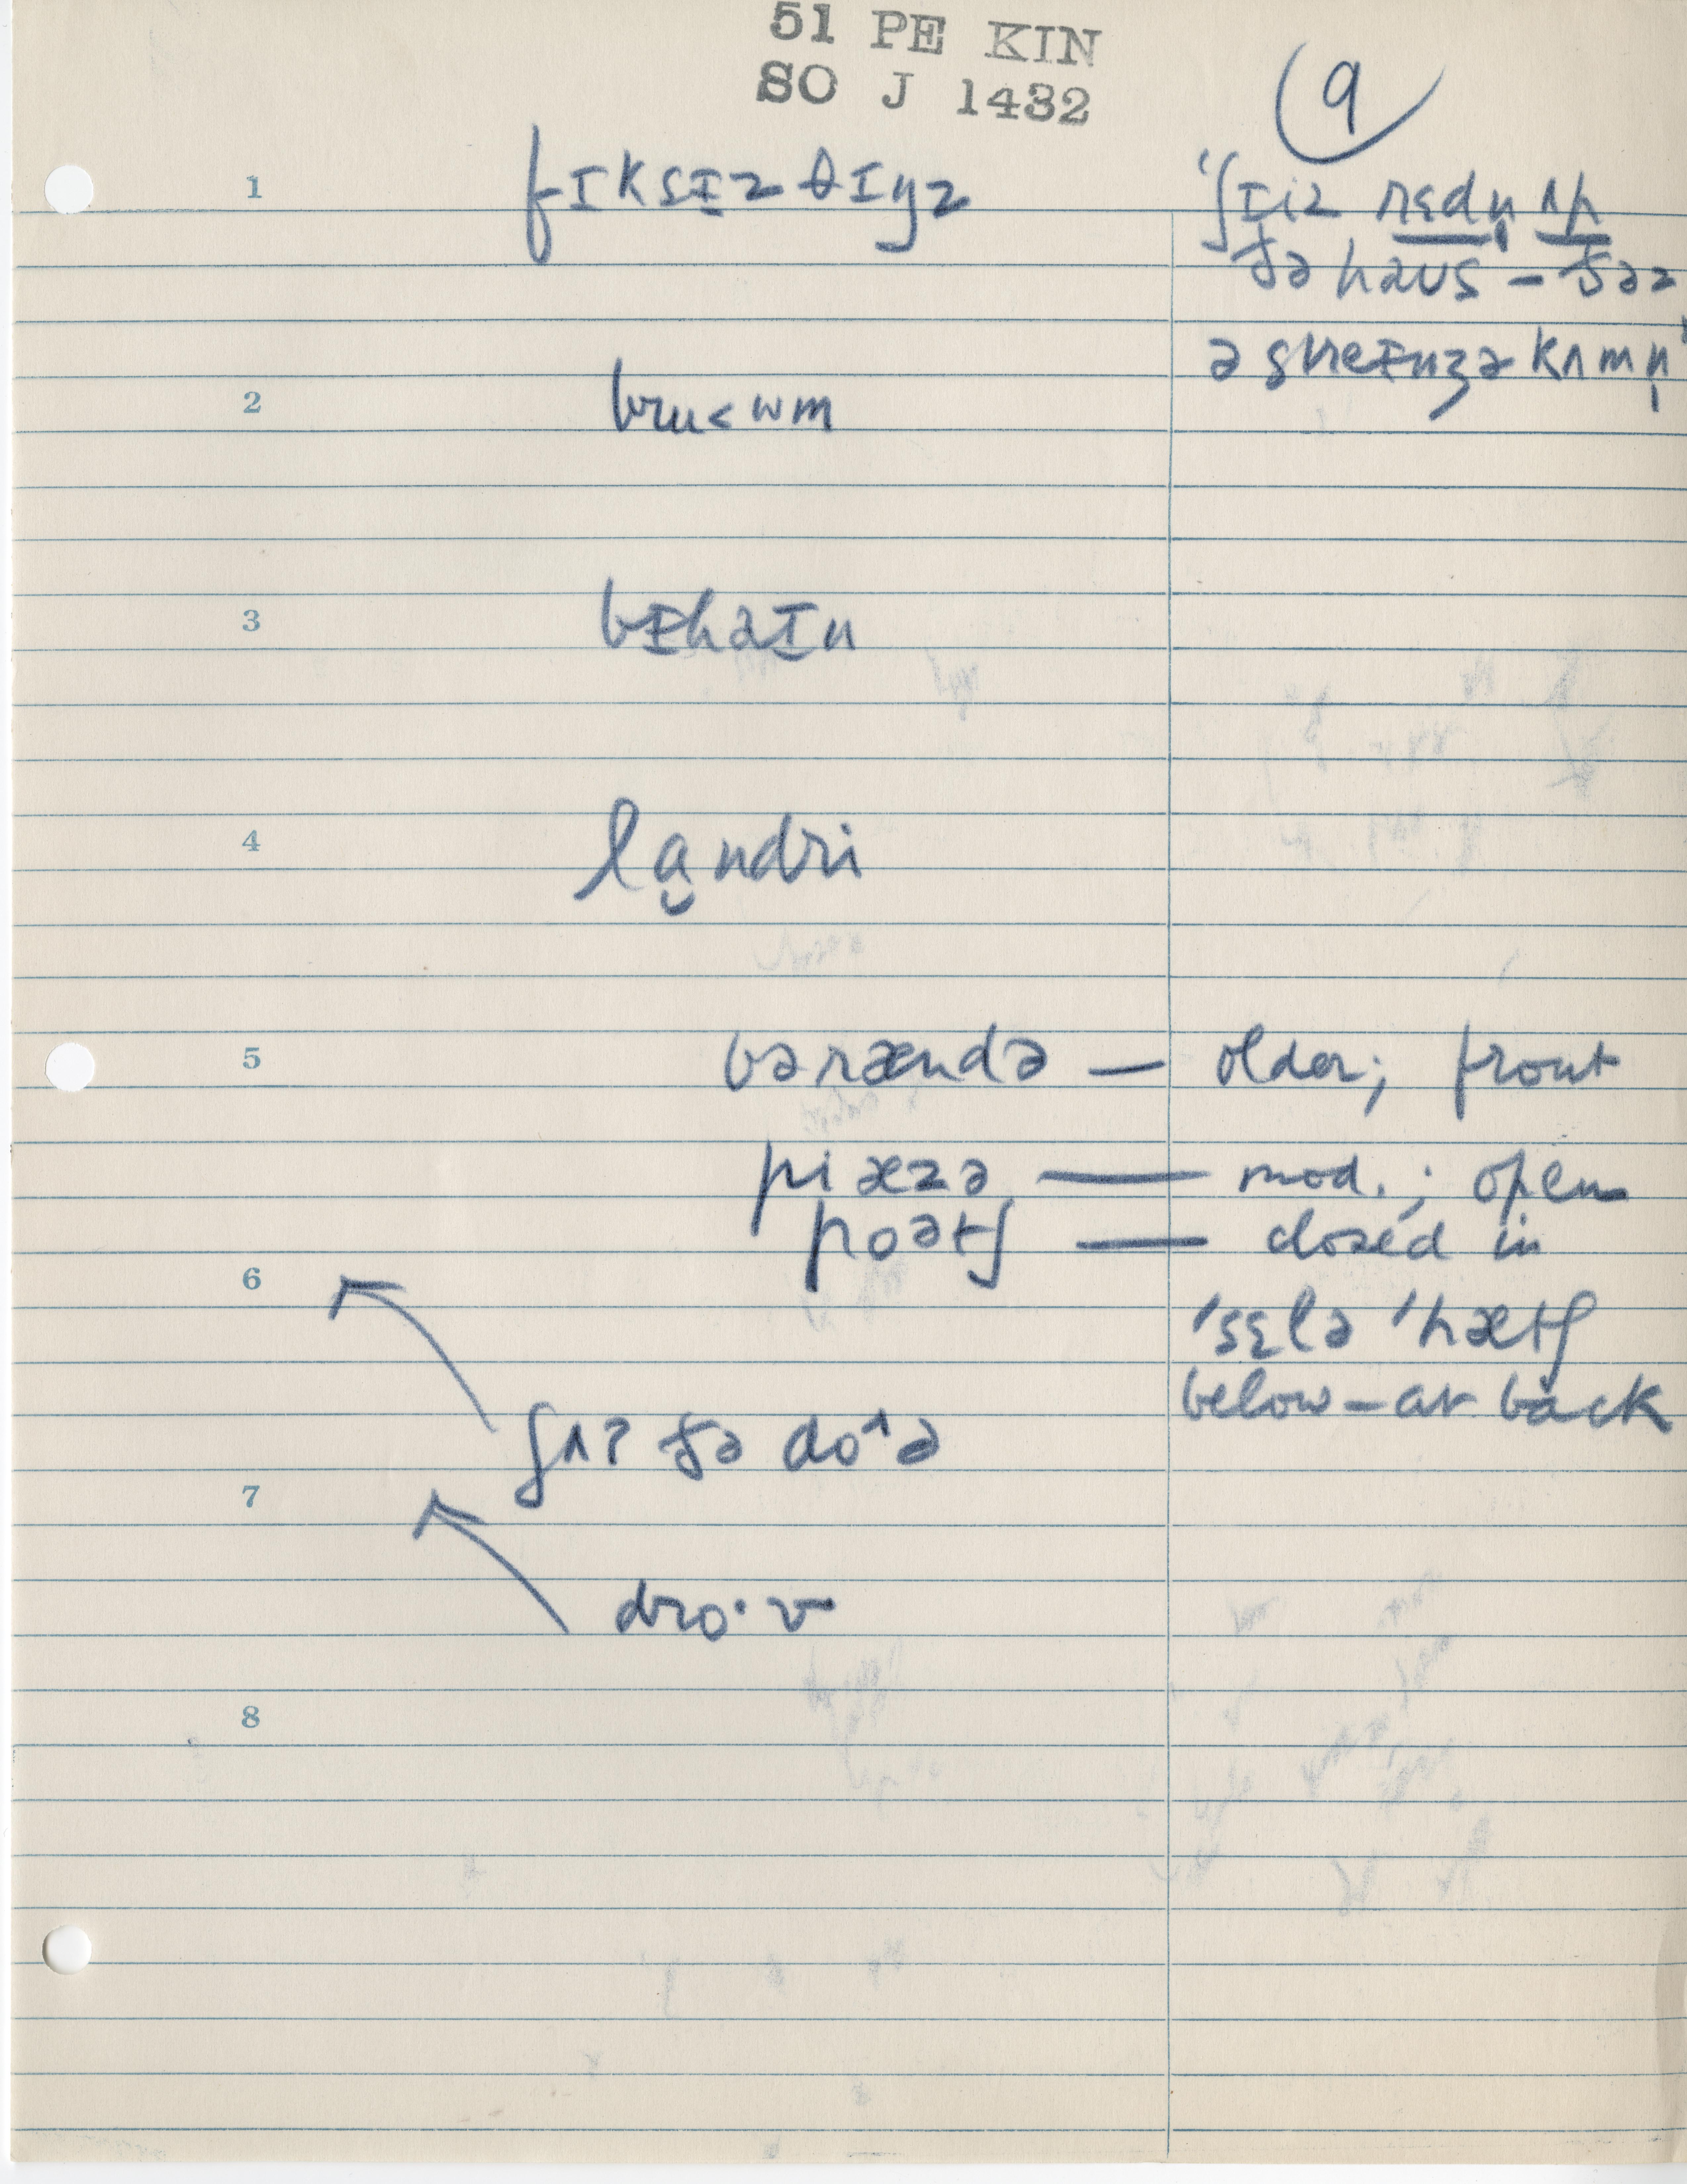 51 PE KIN
SO J 1432
9
1 fɪksɪz θɪŋz
'ʃɪiz rɛdn̩ ʌp
ðə haʊs – ðəz
ə streɪnʒə kʌmn̩'
2 bru˂wm
3 bɪhaɪn
4 lɑ̮ndri
5 vərændə — older; front
piæzə — mod.; open
poətʃ — closed in
6
'sɛlə 'hætʃ
below – at back
ʃʌʔ ðə do^ə
7
dro·v
8